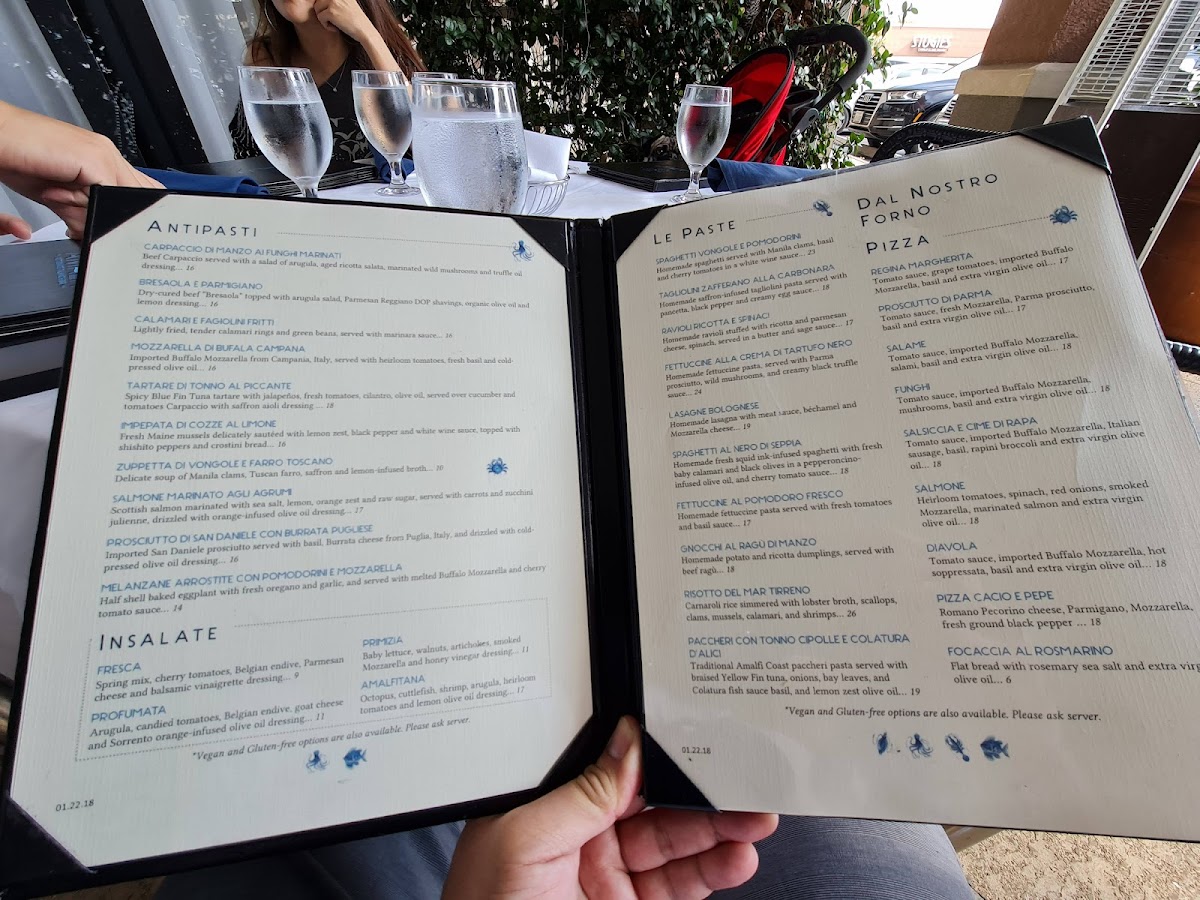 STOGIES
ANTIPASTI
CARPACCIO DI MANZO AI FUNGHI MARINATI
Beef Carpaccio served with a salad of arugula, aged ricotta salata, marinated wild mushrooms and truffle oil
dressing... 16
BRESAOLA E PARMIGIANO
Dry-cured beef "Bresaola" topped with arugula salad, Parmesan Reggiano DOP shavings, organic olive oil and
lemon dressing... 16
CALAMARI E FAGIOLINI FRITTI
Lightly fried, tender calamari rings and green beans, served with marinara sauce... 16
MOZZARELLA DI BUFALA CAMPANA
Imported Buffalo Mozzarella from Campania, Italy, served with heirloom tomatoes, fresh basil and cold-
pressed olive oil... 16
TARTARE DI TONNO AL PICCANTE
Spicy Blue Fin Tuna tartare with jalapeños, fresh tomatoes, cilantro, olive oil, served over cucumber and
tomatoes Carpaccio with saffron aioli dressing ... 18
IMPEPATA DI COZZE AL LIMONE
Fresh Maine mussels delicately sautéed with lemon zest, black pepper and white wine sauce, topped with
shishito peppers and crostini bread... 16
ZUPPETTA DI VONGOLE E FARRO TOSCANO
Delicate soup of Manila clams, Tuscan farro, saffron and lemon-infused broth... 10
SALMONE MARINATO AGLI AGRUMI
Scottish salmon marinated with sea salt, lemon, orange zest and raw sugar, served with carrots and zucchini
julienne, drizzled with orange-infused olive oil dressing... 17
PROSCIUTTO DI SAN DANIELE CON BURRATA PUGLIESE
Imported San Daniele prosciutto served with basil, Burrata cheese from Puglia, Italy, and drizzled with cold-
pressed olive oil dressing... 16
MELANZANE ARROSTITE CON POMODORINI E MOZZARELLA
Half shell baked eggplant with fresh oregano and garlic, and served with melted Buffalo Mozzarella and cherry
tomato sauce... 14
INSALATE
FRESCA
Spring mix, cherry tomatoes, Belgian endive, Parmesan
cheese and balsamic vinaigrette dressing... 9
PROFUMATA
Arugula, candied tomatoes, Belgian endive, goat cheese
and Sorrento orange-infused olive oil dressing... 11
PRIMIZIA
Baby lettuce, walnuts, artichokes, smoked
Mozzarella and honey vinegar dressing... 11
AMALFITANA
Octopus, cuttlefish, shrimp, arugula, heirloom
tomatoes and lemon olive oil dressing... 17
*Vegan and Gluten-free options are also available. Please ask server.
01.22.18
LE PASTE
SPAGHETTI VONGOLE E POMODORINI
Homemade spaghetti served with Manila clams, basil
and cherry tomatoes in a white wine sauce... 23
TAGLIOLINI ZAFFERANO ALLA CARBONARA
Homemade saffron-infused tagliolini pasta served with
pancetta, black pepper and creamy egg sauce... 18
RAVIOLI RICOTTA E SPINACI
Homemade ravioli stuffed with ricotta and parmesan
cheese, spinach, served in a butter and sage sauce... 17
FETTUCCINE ALLA CREMA DI TARTUFO NERO
Homemade fettuccine pasta, served with Parma
prosciutto, wild mushrooms, and creamy black truffle
sauce... 24
LASAGNE BOLOGNESE
Homemade lasagna with meat sauce, béchamel and
Mozzarella cheese... 19
SPAGHETTI AL NERO DI SEPPIA
Homemade fresh squid ink-infused spaghetti with fresh
baby calamari and black olives in a pepperoncino-
infused olive oil, and cherry tomato sauce... 18
FETTUCCINE AL POMODORO FRESCO
Homemade fettuccine pasta served with fresh tomatoes
and basil sauce... 17
GNOCCHI AL RAGÙ DI MANZO
Homemade potato and ricotta dumplings, served with
beef ragù... 18
RISOTTO DEL MAR TIRRENO
Carnaroli rice simmered with lobster broth, scallops,
clams, mussels, calamari, and shrimps... 26
PACCHERI CON TONNO CIPOLLE E COLATURA
D'ALICI
Traditional Amalfi Coast paccheri pasta served with
braised Yellow Fin tuna, onions, bay leaves, and
Colatura fish sauce basil, and lemon zest olive oil... 19
DAL NOSTRO
FORNO
PIZZA
REGINA MARGHERITA
Tomato sauce, grape tomatoes, imported Buffalo
Mozzarella, basil and extra virgin olive oil... 17
PROSCIUTTO DI PARMA
Tomato sauce, fresh Mozzarella, Parma prosciutto,
basil and extra virgin olive oil... 17
SALAME
Tomato sauce, imported Buffalo Mozzarella,
salami, basil and extra virgin olive oil... 18
FUNGHI
Tomato sauce, imported Buffalo Mozzarella,
mushrooms, basil and extra virgin olive oil... 18
SALSICCIA E CIME DI RAPA
Tomato sauce, imported Buffalo Mozzarella, Italian
sausage, basil, rapini broccoli and extra virgin olive
oil... 18
SALMONE
Heirloom tomatoes, spinach, red onions, smoked
Mozzarella, marinated salmon and extra virgin
olive oil... 18
DIAVOLA
Tomato sauce, imported Buffalo Mozzarella, hot
soppressata, basil and extra virgin olive oil... 18
PIZZA CACIO E PEPE
Romano Pecorino cheese, Parmigano, Mozzarella,
fresh ground black pepper ... 18
FOCACCIA AL ROSMARINO
Flat bread with rosemary sea salt and extra virgin
olive oil... 6
*Vegan and Gluten-free options are also available. Please ask server.
01.22.18